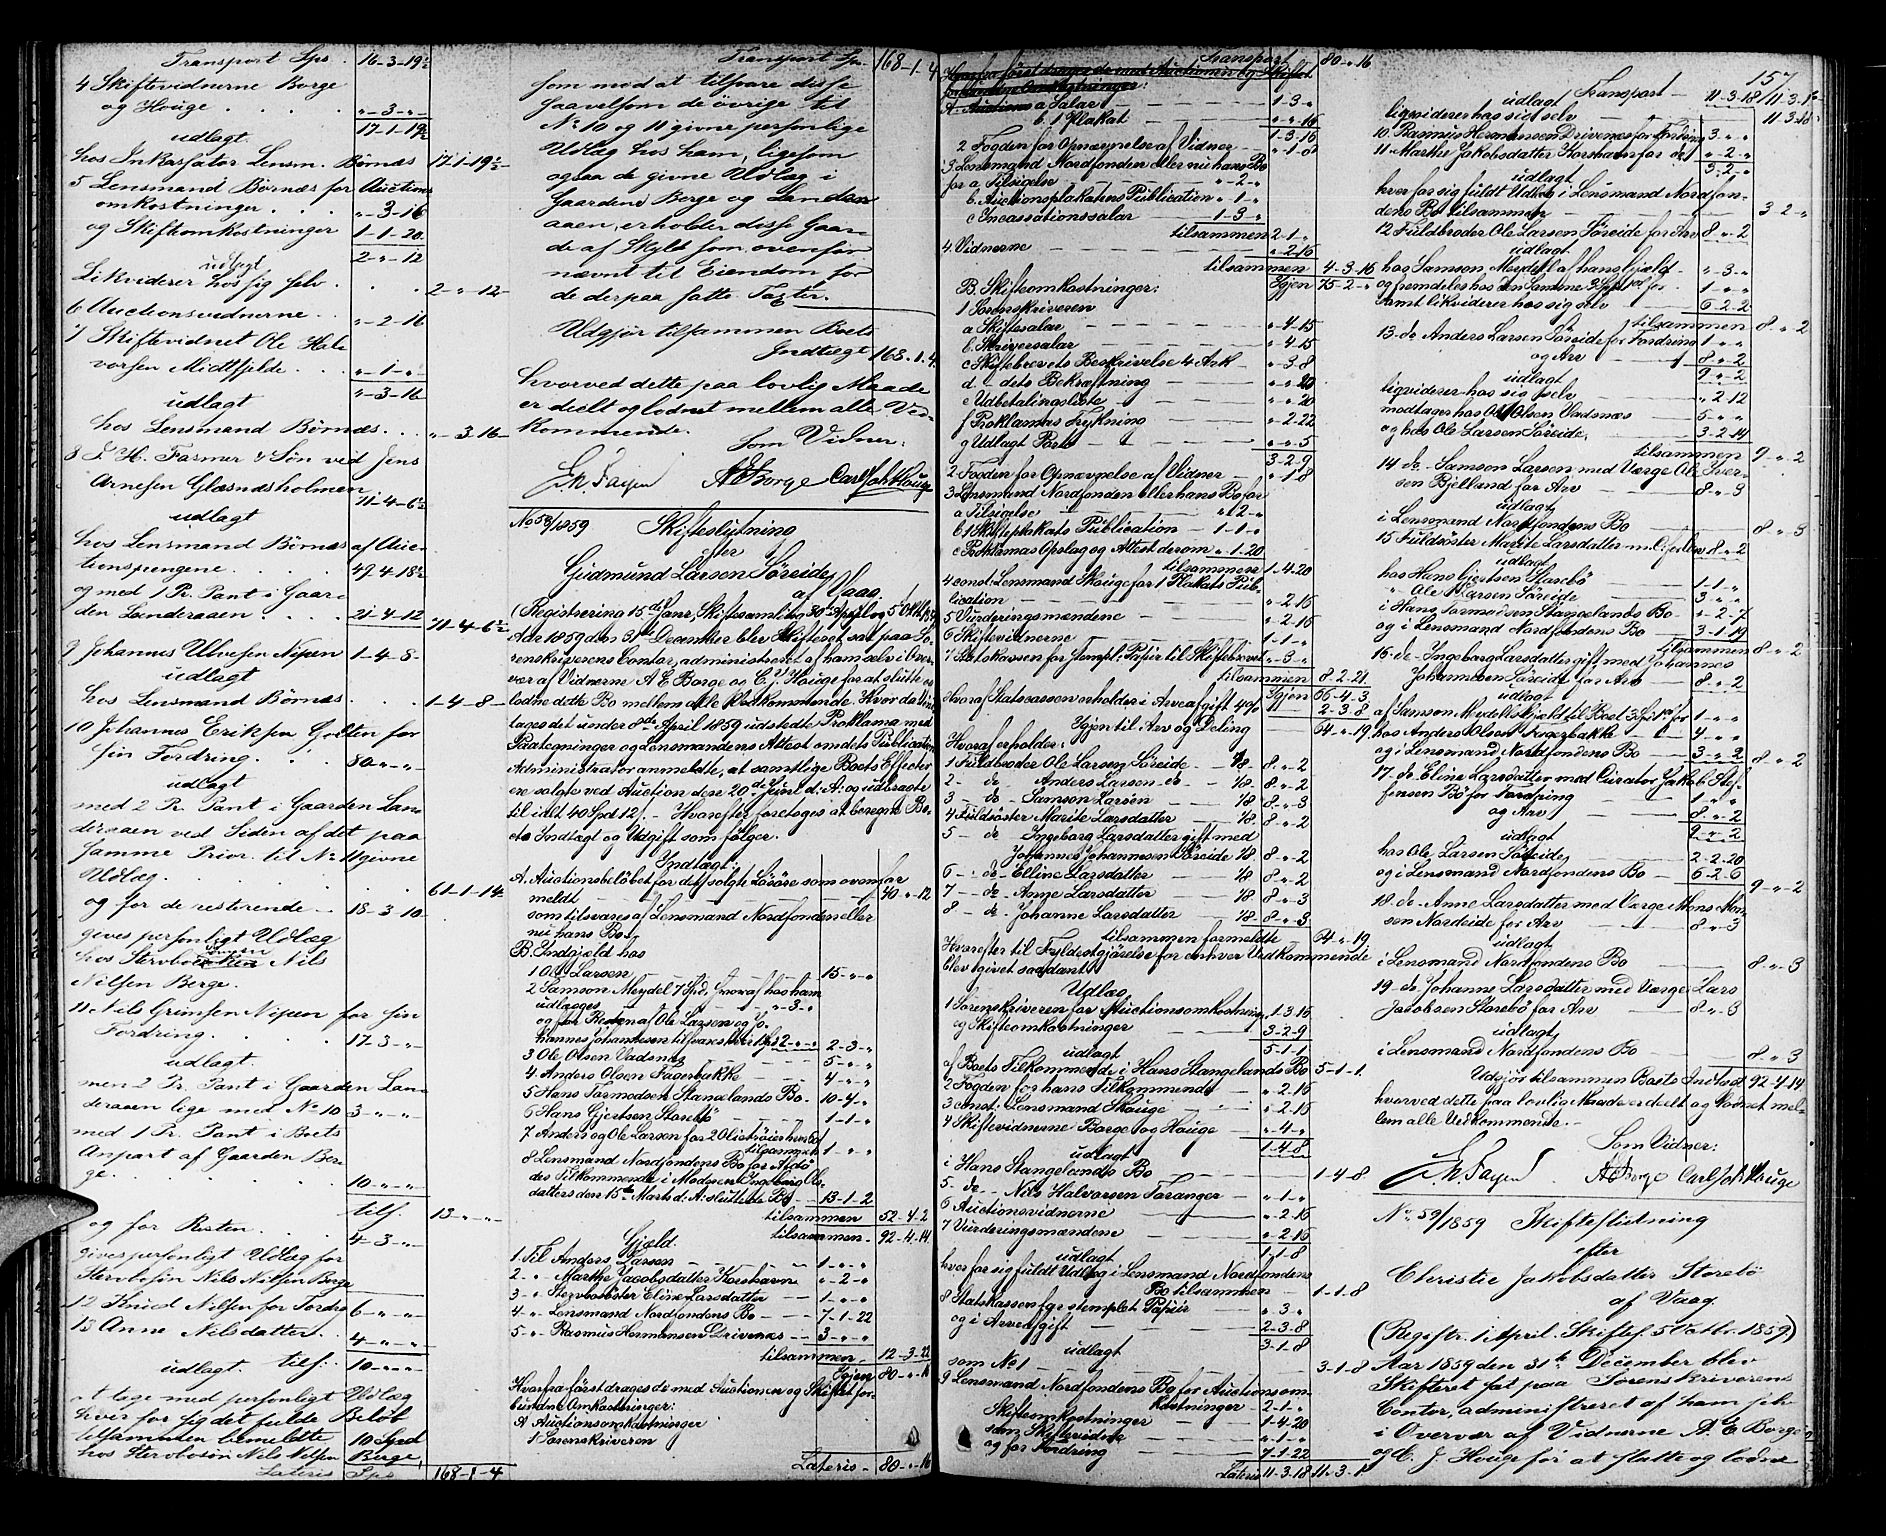 Transport Sps. 16-3-19½
4 Skiftevidnerne Borge
og Houge . . . „-3-„
17-1-19½
udlagt
hos Inkassator Lensm. Børnæs 17-1-19½
5 Lensmand Børnæs for Auctions
omkostninger . . . „-3-16
og Skiftomkostninger 1-1-20
2-„-12
udlagt
Likviderer hos sig selv . . . 2-„-12
6 Auctionsvidnerne . . „-2-16
7 Skiftevidnet Ole Hal-
vorsen Midtfjelde . . . „-1-„
„-3-16
udlagt
hos Lensmand Børnæs . . . „-3-16
8 J. H. Fasmer & Søn ved Jens
Arnesen Glæsnæsholmen
71-4-6½
udlagt
hos Lensmand Børnæs af Auc-
tionspengene . . . 49-4-18½
og med 1 Pr. Pant i Gaar-
den Landeraaen . . . 21-4-12
71-4-6½
9 Johannes Ulvesen Nipen 1-4-8
udlagt
hos Lensmand Børnæs . . . 1-4-8
10 Johannes Eriksen Golten for
sin Fordring . . . 80-„-„
udlagt
med 2 Pr. Pant i Gaarden Lan-
deraaen ved Siden af det paa
samme Prior. til No 11 givne
Udlæg . . . 61-1-14
og for de resterende 18-3-10
gives personligt Udlæg
hos Stervbosønnen Nils
Nilsen Berge.
11 Nils Grimsen Nipen for sin
Fordring . . . 17-3-„
udlagt
men 2 Pr. Pant i Gaarden Lan-
deraaen lige med No 10 3-„-„
med 1 Pr. Pant i Boets
Anpart af Gaarden Ber-
ge . . . 10-„-„
tils. 13-„-„
og for Resten . . . 4-3-„
gives personligt Udlæg for
Stervbosøn Nils Nilsen Berge
12 Knud Nilsen for Fordrg 6-„-„
13 Anne Nilsdatter . . 4-„-„
udlagt tils: 10-„-„
at tage med personligt Udlæg
hver for sig det fulde Beløb
tilsammen bemeldte 10 Spd
hos Stervbosøn Nils Nilsen Berge,
Lateris Sps 168-1-4
Transport Sp. 168-1-4
som med at tilsvare disse
saavelsom de øvrige til
No 10 og 11 givne personlige
Udlæg hos ham, ligesom
ogsaa de givne Udlæg i
Gaardene Berge og Lander-
aaen, erholder disse Gaar-
de af Skyld som ovenfor
nævnt til Eiendom for
de derpaa satte Taxter.
Udgjør tilsammen Boets
Indtægt 168-1-4
hvorved dette paa lovlig Maade
er deelt og lodnet mellem alle Ved-
kommende.
Som Vidner:
A E Borge Carl Joh Houge
No 58/1859 Skifteslutning
efter
Gudmund Larsen Søreide
af Vaag.
(Registrering 15de Janr, Skiftesamling 30te April og 5 Oktbr 1859)
Aar 1859 den 31te December blev Skifteret sat paa So-
renskriverens Contor, administreret af ham selv i Over-
vær af Vidnerne A E Borge og C. J. Houge for at slutte og
lodne dette Bo mellem alle Vedkommende. Hvor da frem-
lagdes det under 8de April 1859 udstedte Proklama med
Paategninger og Lensmandens Attest om dets Publication.
Administrator anmeldte, at samtlige Boets Effecter
ere solgte ved Auction den 20de Juni d: A: og udbragte
til idt 40 Spd 12 /.- Hvorefter foretoges at beregne Bo-
ets Indtægt og Udgift som følger.
Indtægt:
A. Auctionsbeløbet for det solgte Løsøre som ovenfor
meldt 40-„-12
som tilsvares af Lensmand Nordfonden eller
nu hans Bo.
B. Indgjeld hos
1 Ole Larsen 15-„-„
2 Samson Meydel 7 Spd, hvoraf hos ham
udlægges „-3-„
og for Resten af Ole Larsen og Jo-
hannes Johannesen tilsvares hver 1 Spd 2-„-„ 2-3-„
3 Ole Olsen Vadsnæs 5-„-„
4 Anders Olsen Fagerbakke 4-„-„
5 Hans Tormodsen Stangelands Bo 10-4-„
6 Hans Gjertsen Storebø 1-1-„
7 Anders og Ole Larsen for 2 Olietrøier
tilsammen 1-„-„
8 Lensmand Nordfondens Bo for Afdø-
des Tilkommende i Moderen Ingeborg Ols-
datters den 15de Marts d: A: sluttede Bo 13-1-2
tilsammen 52-4-2
tilsammen 92-4-14
Gjæld.
1. Til Anders Larsen 1-„-„
2-„- Marthe Jacobsdatter Korshavn „-2-„
3-„- Stervbosøster Eline Larsdatter 1-„-„
4-„- Lensmand Nordfondens Bo 7-1-22
5-„- Rasmus Hermansen Drivenes 3-„-„
tilsammen 12-3-22
Igjen 80-„-16
Hvorfra først drages de med Auctionen og Skiftet for-
bundne Omkostninger:
A Auctionsomkostninger
1 Sorenskriveren
Lateris 80-„-16
Transport 80-„-16
Hvorfra først drages de med Auctionen og Skiftet
forbundne Omkostninger:
A. Auctions a Salar 1-3-„
b. 1 Plakat „-„-16
1-3-16
2 Fogden for Opnævnelse af Vidner „-1-8
3 Lensmand Nordfonden eller nu hans Bo
for a Tilsigelse „-2-„
b. Auctionsplakatens Publication „-1-„
c Incassationssalar 1-3-„
tilsammen 2-1-„
4. Vidnerne „-2-16
tilsammen 4-3-16
Igjen 75-2-„
B. Skifteomkostninger:
1 Sorenskriveren
a Skiftesalar „-4-15
b. Skriversalar „-4-15
c Skiftebrevets Beskrivelse 4 Ark „-3-8
d. - dets Bekræftning „-„-20
e Udbetalingsliste „-„-20
f Proklamas Trykning „-2-22
g Udlagt Porto „-„-5
3-2-9
2 Fogden for Opnævnelse af Vidner „-1-8
3 Lensmand Nordfonden eller hans Bo for
a Tilsigelse „-2-„
b 1 Skifteplakats Publication 1-1-„
c Proklamas Opslag og Attest derom „-1-20
tilsammen 1-4-20
4 const: Lensmand Skouge for 1 Plakats Pub-
lication „-2-16
5 Vurderingsmændene „-2-16
6 Skiftevidnerne 1-1-„
7 Statskassen for stempl: Papir til Skiftebrevet „-3-„
tilsammen 8-2-21
Igjen 66-4-3
Hvoraf Statscassen erholder i Arveafgift 4% 2-3-8
Igjen til Arv og Deling 64-„-19
Hvoraf erholder:
1 Fuldbroder Ole Larsen Søreide 1/8 8-„-2
2 - do - Anders Larsen do 1/8 8-„-2
3 - do - Samson Larsen 1/8 8-„-3
4 Fuldsøster Marite Larsdatter 1/8 8-„-2
5 - do - Ingeborg Larsdatter gift med
Johannes Johannesen Søreide 1/8 8-„-2
6 - do - Elline Larsdatter 1/8 8-„-2
7 - do - Anne Larsdatter 1/8 8-„-3
8 - do - Johanne Larsdatter 1/8 8-„-3
tilsammen formeldte 64-„-19
Hvorefter til Fyldestgjørelse for enhver Vedkommende
blev givet saadant
Udlæg
1 Sorenskriveren for Auctionsomkostning 1-3-16
og Skifteomkostninger 3-2-9
5-1-1
udlagt
af Boets Tilkommende i Hans Stangelands Bo 5-1-1
2 Fogden for hans Tilkommende „-2-16
3 const: Lensmand Skouge „-2-16
4 Skiftevidnerne Borge og Houge „-4-„
1-4-8
udlagt
i Hans Stangelands Bo 1-4-8
5 - do - Nils Halvorsen Faranger „-1-„
6 Auctionsvidnerne „-2-16
7 Vurderingsmændene „-2-16
1-1-8
udlagt
hver for sig fuldt Udlæg i Lensmand Nordfondens
Bo tilsammen 1-1-8
8 Statskassen for stemplet Papir „-3-„
og i Arveafgift 2-3-8
3-1-8
udlagt
som No 1 3-1-8
9 Lensmand Nordfondens Bo for Auctionsom-
kostninger 2-1-„
Skifteomkostninger 1-4-20
som Skiftevidne „-1-„
og for Fordring 7-1-22
Lateris 11-3-18 11-3-1
157
Transport 11-3-18/11-3-1
udlagt
liqviderer hos sig selv 11-3-18
10 Rasmus Hermansen Drivenes for Fordring 3-„-„
11 Marthe Jakobsdatter Korshavn for do „-2-„
3-2-„
udlagt
hver for sig fuldt Udlæg i Lensmand Nordfon-
dens Bo tilsammen 3-2-„
12 Fuldbroder Ole Larsen Søreide for Arv 8-„-2
udlagt
hos Samson Meydell af hans Gjæld „-3-„
og fremdeles hos den Samme 3 Spd for 1-„-„
samt likviderer hos sig selv 6-2-2
tilsammen 8-„-2
13 - do Anders Larsen Søreide for Fordring 1-„-„
og Arv 8-„-2
9-„-2
udlagt
liqviderer hos sig selv „-2-12
modtager hos Ole Olsen Vadsnæs 5-„-„
og hos Ole Larsen Søreide 3-2-14
tilsammen 9-„-2
14 do - Samson Larsen med Værge Ole Iver-
sen Bjelland for Arv 8-„-3
udlagt
i Lensmand Nordfondens Bo 8-„-3
15 Fuldsøster Marite Larsdatter 8-„-2
udlagt
hos Hans Gjertsen Storebø 1-1-„
„ Ole Larsen Søreide 3-„-„
i Hans Tormodsen Stangelands Bo „-2-7
og i Lensmand Nordfondens Bo 3-1-19
tilsammen 8-„-2
16 - do - Ingeborg Larsdatter gift med Johannes
Johannesen Søreide for Arv 8-„-2
udlagt
af Samson Meydells Gjæld til Boet 3 Spd for 1-„-„
hos Anders Olsen Fagerbakke 4-„-„
og i Lensmand Nordfondens Bo 3-„-2
8-„-2
17 - do - Eline Larsdatter med Curator Jakob Stef-
fensen Bø for Fordring 1-„-„
og Arv 8-„-2
9-„-2
udlagt
hos Ole Larsen Søreide 2-2-20
og i Lensmand Nordfondens Bo 6-2-6
9-„-2
18 - do - Anne Larsdatter med Værge Mons Mon-
sen Nordeide for Arv 8-„-3
udlagt
i Lensmand Nordfondens Bo 8-„-3
19 - do - Johanne Larsdatter med Værge Lars
Jacobsen Storebø for Arv 8-„-3
udlagt
i Lensmand Nordfondens Bo 8-„-3
Udgjør tilsammen Boets Indtægt 92-4-14
hvorved dette paa lovlig Maade er deelt og lodnet mel-
lem alle Vedkommende.-
Som Vidner:
A E Borge Carl Joh Houge
No. 59/1859 Skifteslutning
efter
Christie Jakobsdatter Storebø
af Vaag.
(Registr. 1 April. Skiftes. 5 Octbr. 1859)
Aar 1859 den 31te December blev
Skifteret sat paa Sorenskriverens
Contor, administreret af ham selv
i Overvær af Vidnerne A. E. Borge
og C. J. Houge for at slutte og lodne